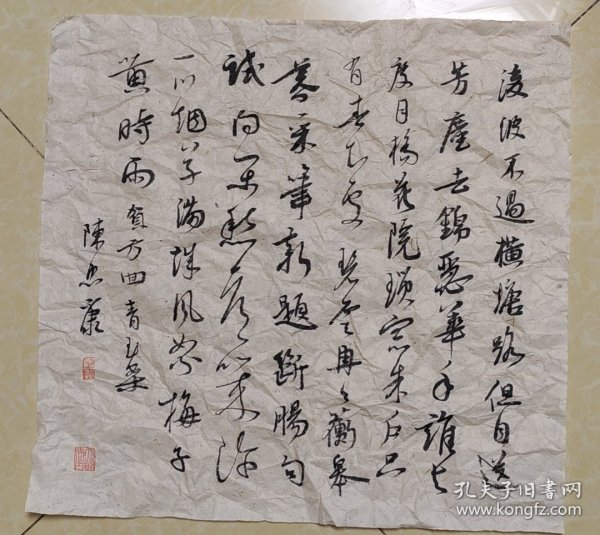 淩波不過橫塘路但目送
芳塵去錦瑟華年誰與
度月橋花院瑣窗朱户只
有春知處碧雲冉々蘅皋
暮采筆新題斷腸句
試問閑愁都幾許
一川烟草滿城風絮梅子
黄時雨 賀方回青玉案
陳忠康
孔夫子旧书网
www.kongfz.com